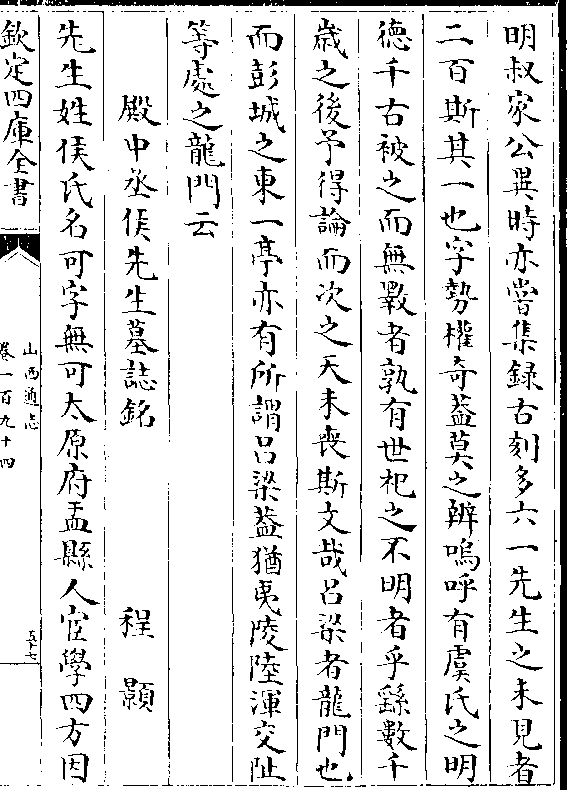 明叔家公異時亦嘗集録古刻多六一先生之未見者
二百斯其一也字勢權竒葢莫之辨嗚呼有虞氏之明
徳千古被之而無斁者孰有世祀之不明者乎繇數千
歲之後予得論而次之天未喪斯文哉吕梁者龍門也
而彭城之東一亭亦有所謂吕梁葢猶夷陵陸渾交阯
等處之龍門云
殿中丞侯先生墓誌銘　程顥
先生姓侯氏名可字無可太原府盂縣人宦學四方因
欽定四庫全書
山西通志
卷一百九十四
五十七